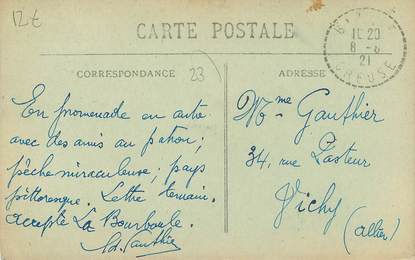 12€
CARTE POSTALE
11 20
8 - 6
21
CREUSE
CORRESPONDANCE
23
ADRESSE
En promenade en auto
avec des amis au patron;
pêche miraculeuse; pays
pittoresque. Lettre demain.
accepté La Bourboule.
Gauthier
Mme Gauthier
34, rue Pasteur
Vichy
(allier)